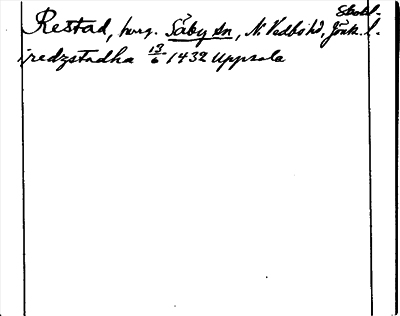 Restad, herrg. Säby sn, N. Vedbo hd, Jönk. l.
i redzstadha 13/6 1432 Uppsala